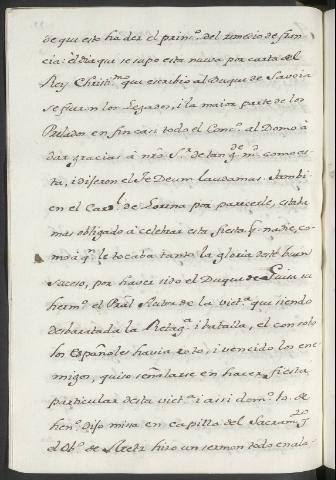 de que esto ha de ser el prinçº. del remedio de fran-
cia: el dia que se supo esta nueva por carta del
Rey Christmº. que escribio al Duque de Saboia
se fueron los Legados, i la maior parte de los
Prelados en fin casi todo el Concº. al Domo â
dar gracias â nrô Sr. de tan gde. md. como es-
ta, i dijeron el Te Deum laudamus. tambi-
en el Cardl. de Lorena por parecerle, estaba
mas obligado â celebrar esta fiesta q. nadie, co-
mo â qn. le tocaba tanto la gloria deste buen
suceso, por haver sido el Duque de Guisa su
hermº. el Pral. Autor de la victª. que siendo
desbaratada la Retagª. i batalla, el con solo
los Españoles havia roto, i vencido los ene-
migos, quiso señalarse en hacer fiesta
particular desta victª. i assi domº. 10. de
henº. dijo misa en capilla del Sacramto.
el Obº. de Metz hizo un sermon todo en ala-